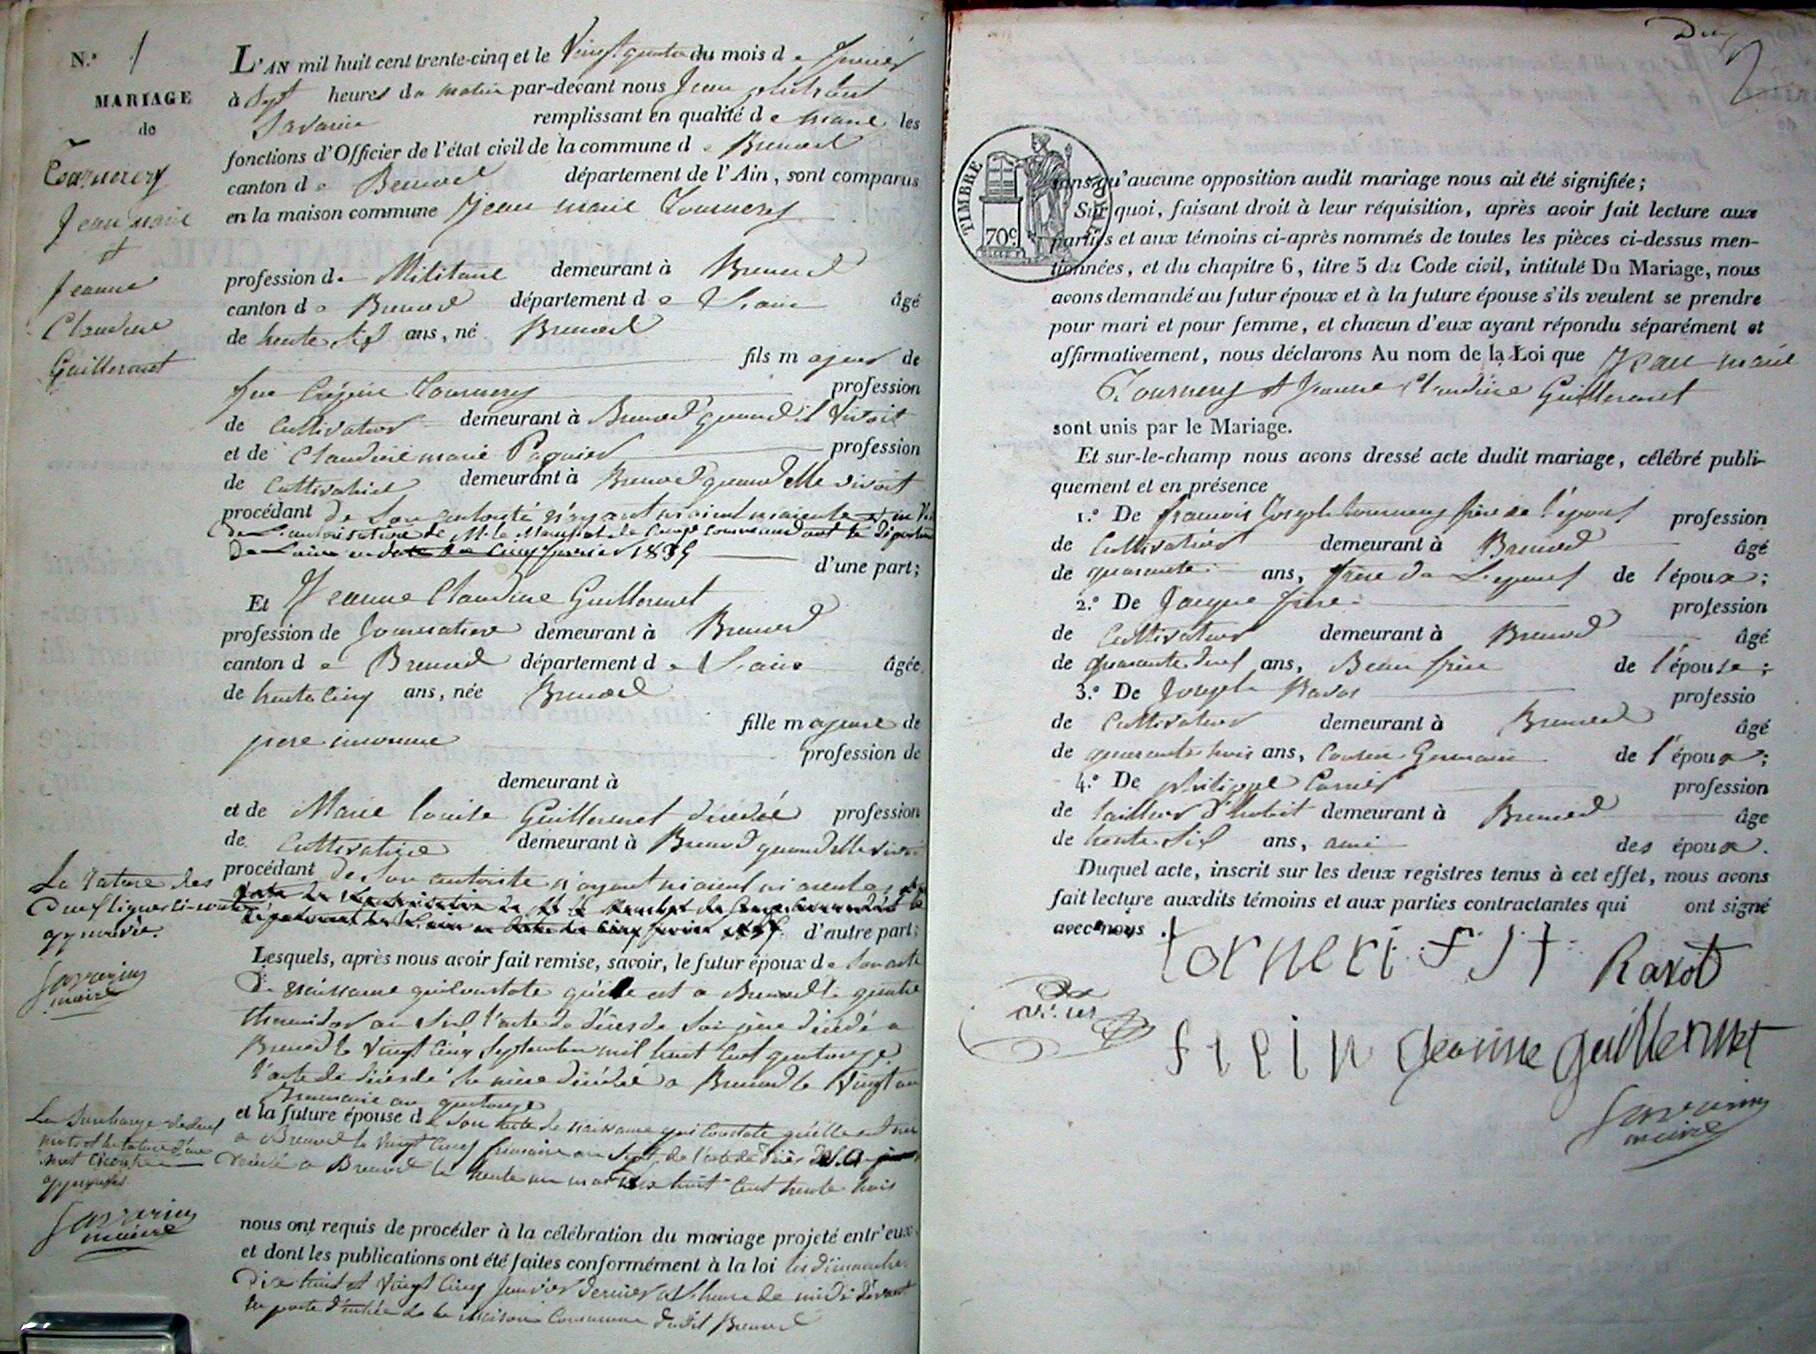 N.° 1
MARIAGE
de
Tournery
Jean marie
et
Jeanne
Claudine
Guillermet
L'AN mil huit cent trente-cinq et le Vingt quatre du mois de
à Sept heures du matin par-devant nous Jean
Savarin remplissant en qualité de maire les
fonctions d'Officier de l'état civil de la commune de Brenod
canton de Brenod département de l'Ain, sont comparus
en la maison commune Jean marie Tournery
profession de Militaire demeurant à Brenod
canton de Brenod département de L'ain âgé
de trente ans, né Brenod
fils majeur de
feu Tournery profession
de Cultivateur demeurant à Brenod quand il vivoit
et de Claudine marie profession
de Cultivatrice demeurant à Brenod quand elle vivoit
procédant de Son autorité n'ayant
De L'autorisation de Mr le Maréchal de Camp Commandant le
De L'ain en date du Cinq 1835 d'une part;
Et Jeanne Claudine Guillermet
profession de Journaliere demeurant à Brenod
canton de Brenod département de L'ain âgée
de trente Cinq ans, née Brenod
fille majeure de
pere inconnu profession de
demeurant à
et de Marie Guillermet décédée profession
de Cultivatrice demeurant à Brenod quand elle vivoit
procédant de Son autorité n'ayant
d'autre part;
La rature des
Deux lignes ci-contre
approuvée.
Savarin
maire
Lesquels, après nous avoir fait remise, savoir, le futur époux de Son acte
De naissance qui Constate qu'il est a Brenod le quatre
thermidor an l'acte de décès de Son père décédé a
Brenod le Vingt Cinq Septembre mil huit Cent quatorze
l'acte de décès de Sa mère décédée a Brenod le Vingt
an quatorze
et la future épouse de Son acte de naissance qui Constate qu'elle est née
a Brenod le Vingt Cinq frimaire an Sept, de l'acte de décès de Sa
décédée a Brenod le trente un mil huit Cent trente trois
La Surcharge de deux
mots et la rature d'un
mot
approuvées
Savarin
maire
nous ont requis de procéder à la célébration du mariage projeté entr'eux
et dont les publications ont été faites conformément à la loi les dimanches
Dix huit et Vingt Cinq Janvier dernier a l'heure de midi devant
la porte d'entrée de la maison Commune dudit Brenod
2
TIMBRE ROYAL
70c
sans qu'aucune opposition audit mariage nous ait été signifiée;
Sur quoi, faisant droit à leur réquisition, après avoir fait lecture aux
parties et aux témoins ci-après nommés de toutes les pièces ci-dessus men-
tionnées, et du chapitre 6, titre 5 du Code civil, intitulé Du Mariage, nous
avons demandé au futur époux et à la future épouse s'ils veulent se prendre
pour mari et pour femme, et chacun d'eux ayant répondu séparément et
affirmativement, nous déclarons Au nom de la Loi que Jean marie
Tournery et Jeanne Claudine Guillermet
sont unis par le Mariage.
Et sur-le-champ nous avons dressé acte dudit mariage, célébré publi-
quement et en présence
1.° De francois Joseph tournery frère de l'époux profession
de Cultivateur demeurant à Brenod âgé
de quarante ans, frère de L'epoux de l'époux;
2.° De Jacque profession
de Cultivateur demeurant à Brenod âgé
de quarante ans, Beau frère de l'épouse;
3.° De Joseph Ravot professio
de Cultivateur demeurant à Brenod âgé
de quarante trois ans, Cousin Germain de l'époux;
4.° De philippe Carrier profession
de tailleur d'habit demeurant à Brenod âge
de trente Six ans, ami des époux.
Duquel acte, inscrit sur les deux registres tenus à cet effet, nous avons
fait lecture auxdits témoins et aux parties contractantes qui ont signé
avec nous.
torneri f j t Ravot
jeanne guillermet
Savarin
maire